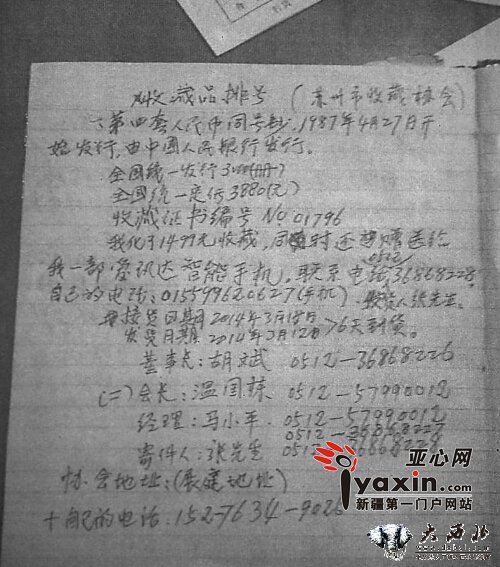 收藏品排号 (苏州市收藏协会)
第四套人民币同号钞.1987年4月27日开
始发行,由中国人民银行发行。
全国统一发行3000(册)
全国统一定价3880(元)
收藏证书编号 No 01796
我花了1499元收藏,同时还赠送给
我一部 智能手机,联系电话0512 36868228
自己的电话:015599620627(手机) 张先生
接货日期 2014年3月18日
发货日期 2014年3月12日 >6天到货。
董事长:胡文斌 0512-36868226
(二)会长:温国栋 0512-57990012
经理:马小平 0512-57990012
0512-36868228
寄件人:张先生 0512-36868228
协会地址:
自己的电话:152-7634-902
亚心网
iyaxin.com
新疆第一门户网站
大西北